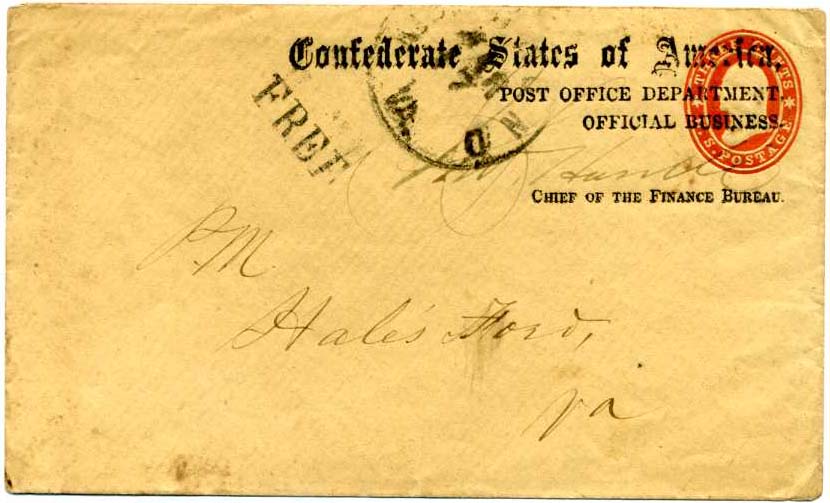 Confederate States of America.
POST OFFICE DEPARTMENT.
OFFICIAL BUSINESS.
THREE CENTS
U.S. POSTAGE
VA.
FREE
CHIEF OF THE FINANCE BUREAU.
P.M.
Hale's Ford,
Va